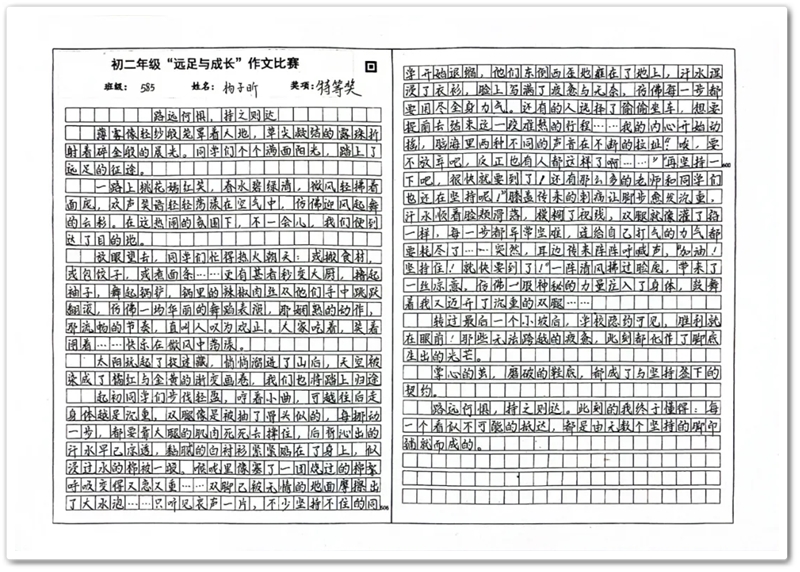 初二年级“远足与成长”作文比赛
班级：585 姓名：杨子昕 奖项：特等奖
路远何惧，持之则达
薄雾像轻纱般笼罩着大地，草尖凝结的露珠折
射着碎金般的晨光。同学们个个满面阳光，踏上了
远足的征途。
一路上桃花嫣红笑，春水碧绿清，微风轻轻拂着
面庞，欢声笑语轻轻荡漾在空气中，仿佛迎风起舞
的云彩。在这热闹的氛围下，不一会儿，我们便到
达了目的地。
放眼望去，同学们忙得热火朝天：或搬食材，
或包饺子，或煮面条……更有甚者秒变大厨，撸起
袖子，舞起锅铲，锅里的辣椒肉丝在他们手中跳跃
翻滚，仿佛一场华丽的舞蹈表演，那娴熟的动作，
那流畅的节奏，直叫人叹为观止。大家吃着，笑着
闹着……快乐在微风中荡漾。
太阳玩起了捉迷藏，悄悄溜进了山后，天空被
染成了橘红与金黄的渐变画卷，我们也将踏上归途
起初同学们步伐轻盈，哼着小曲，可越往后走
身体越是沉重，双腿像是被抽了骨头似的，每挪动
一步，都要靠大腿的肌肉死死去撑住，后背沁出的
汗水早已冻透，黏腻的白衬衫紧紧贴在了身上，似
浸过水的棉被一般，喉咙里像塞了一团烧过的棉絮
呼吸变得又急又重……双脚已被无情的地面摩擦出
了大水泡……只听见哀声一片，不少坚持不住的同
学开始退缩，他们东倒西歪地瘫在了地上，汗水浸
湿了衣衫，脸上写满了疲惫与无奈，仿佛每一步都
要用尽全身力气。还有的人选择了偷偷坐车，想要
提前去结束这一段难熬的行程……我的内心开始动
摇，脑海里两种不同的声音在不断的拉扯？“咳，要
不放弃吧，反正也有人都这样了啊……”“再坚持一
下吧，很快就要到了！还有那么多的老师和同学们
也还在坚持呢！”膝盖传来的刺痛让脚步愈发沉重，
汗水顺着脸颊滑落，模糊了视线，双腿就像灌了铅
一样，每一步都异常艰难，连给自己打气的力气都
要耗尽了……突然，耳边传来阵阵呼喊声，“加油！
坚持住！就快要到了！”一阵清风拂过脸庞，带来了
一丝凉意。仿佛一股神秘的力量注入了身体，鼓舞
着我又迈开了沉重的双腿……
转过最后一个小坡后，学校隐约可见，胜利就
在眼前！那些无法跨越的疲惫，此刻都化作了脚底
生出的光芒。
掌心的茧，磨破的鞋底，都成了与坚持签下的
契约。
路远何惧，持之则达。此刻的我终于懂得：每
一个看似不可能的抵达，都是由无数个坚持的脚印
铺就而成的。